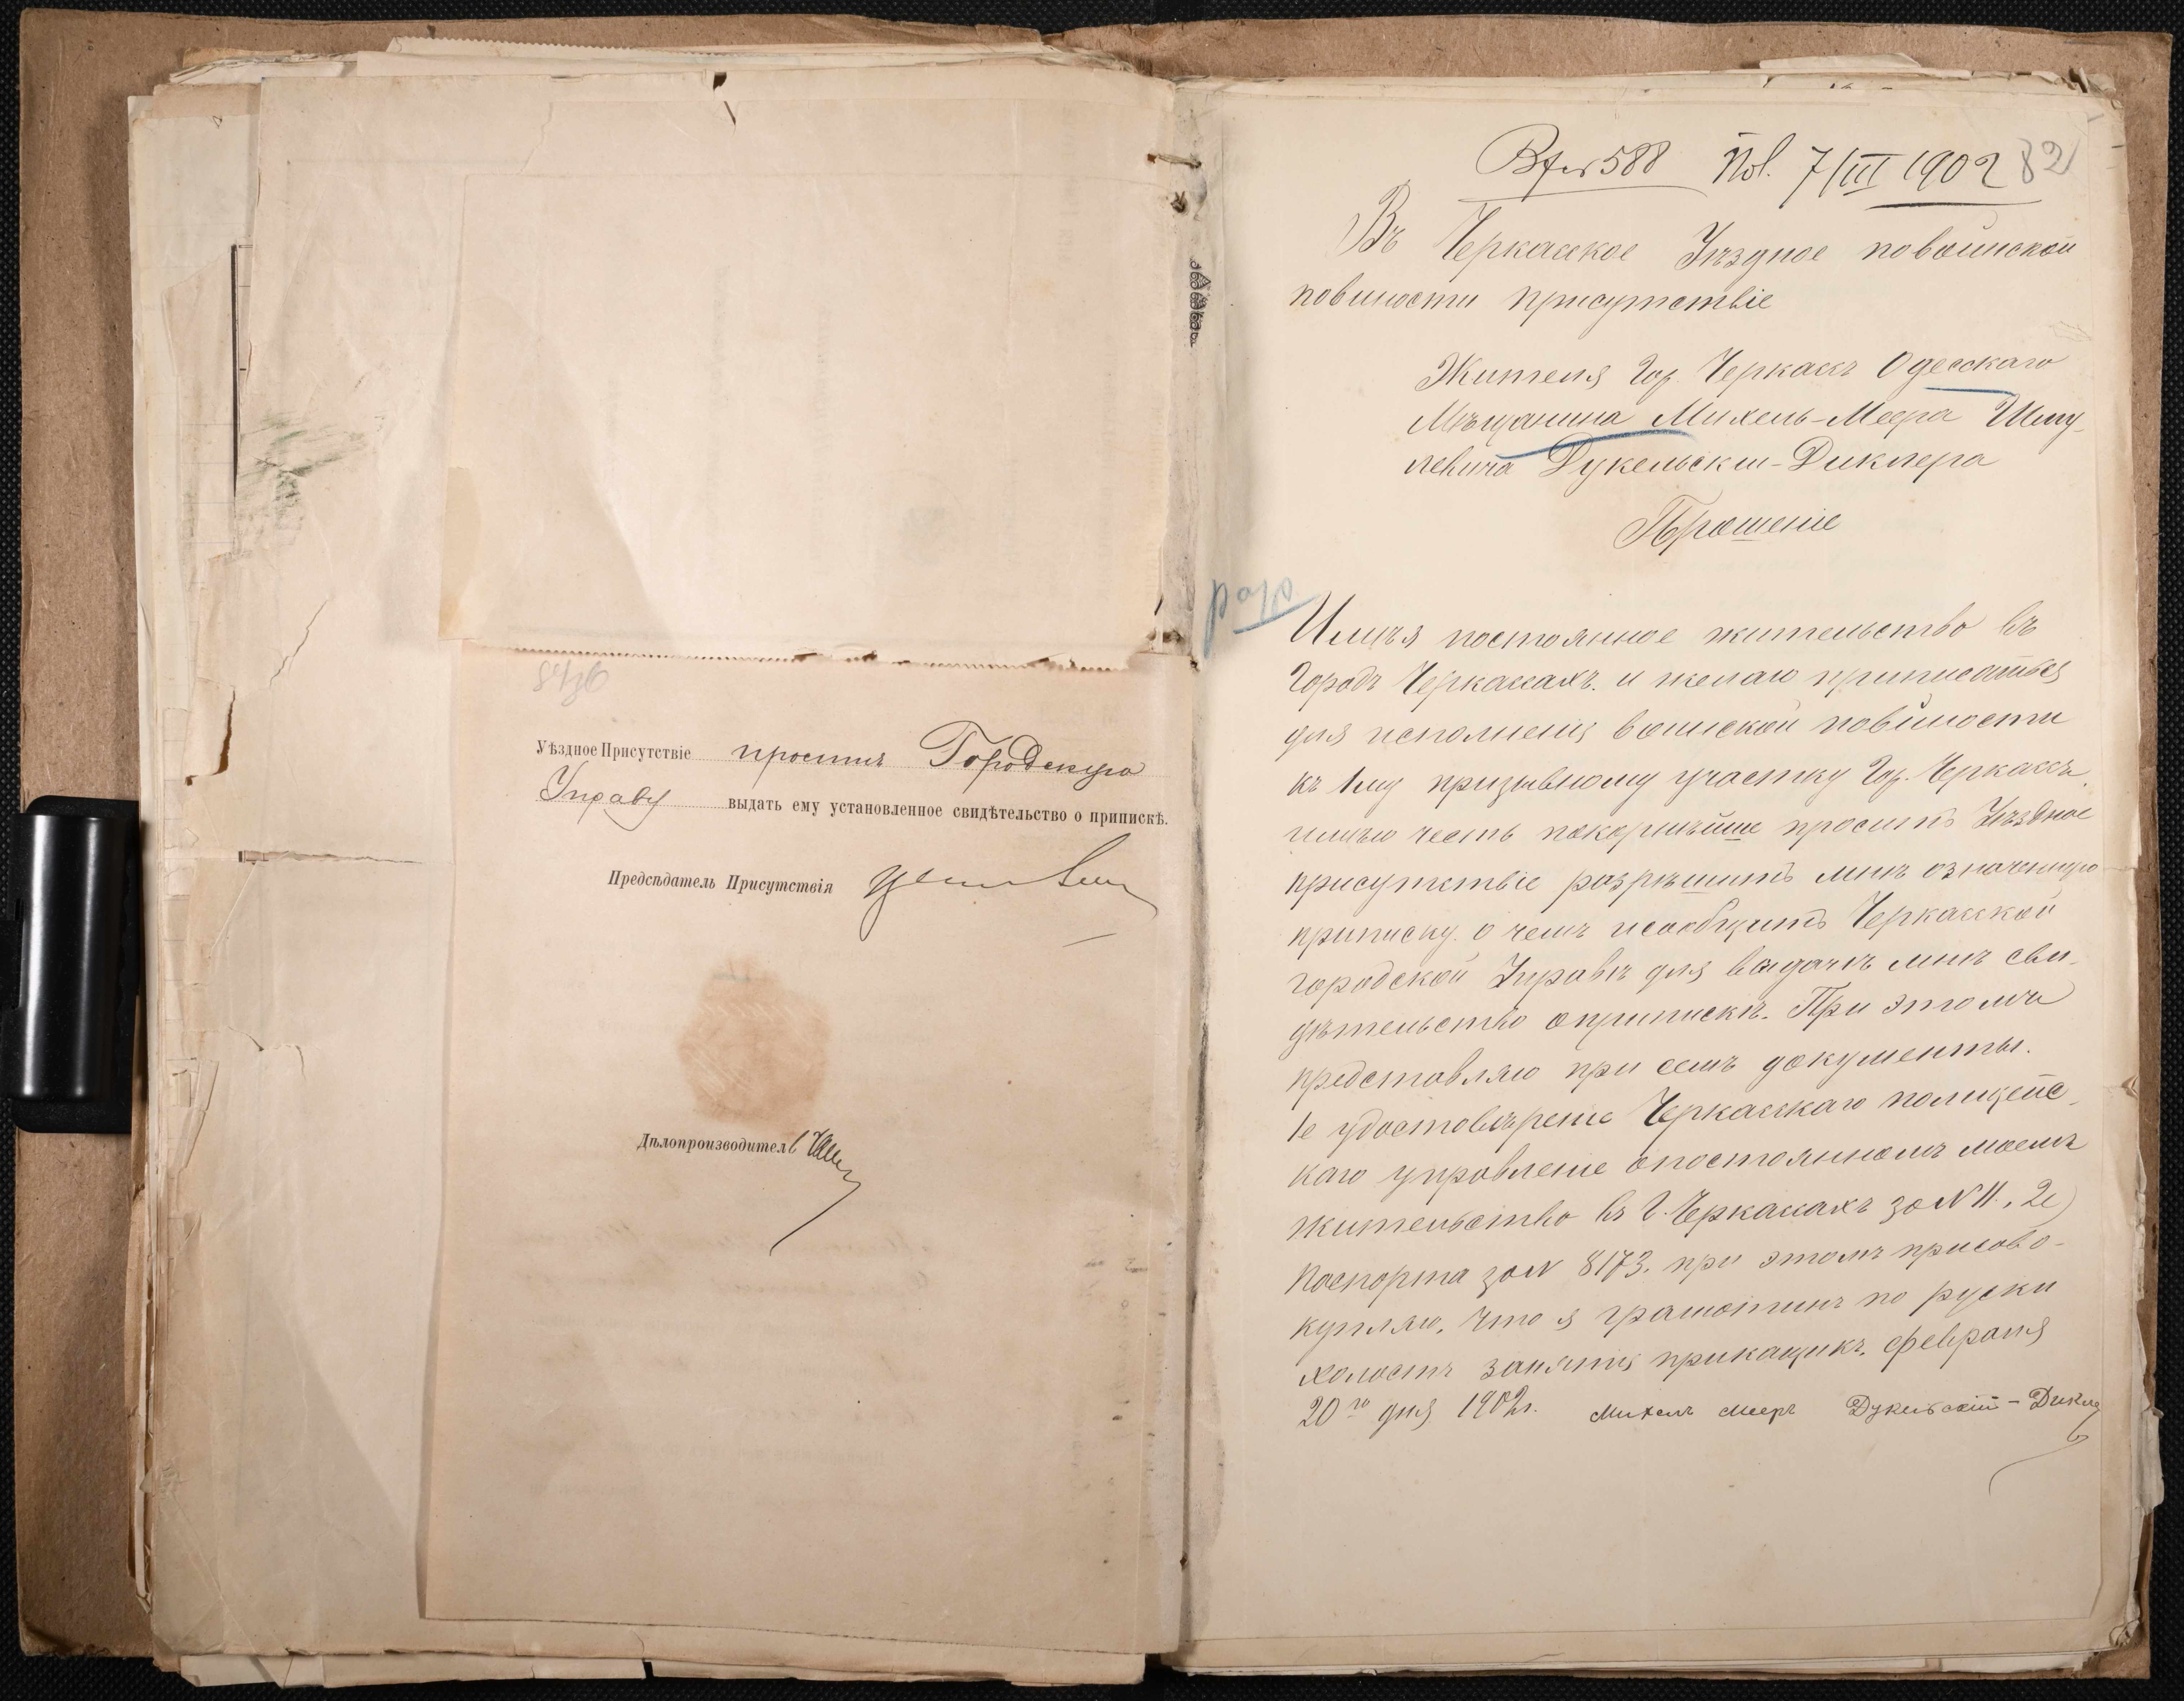 Уѣздное Присутствіе проситъ Городскую
Управу выдать ему установленное свидѣтельство о припискѣ.
Предсѣдатель Присутствія
Дѣлопроизводитель
588 Пол. 7/III 1902 82
Въ Черкасское Уѣздное повоинской
повиности присутствіе
Жителя Гор. Черкассъ Одесскаго
Мѣщанина Михель-Меера Шму-
левича Дукельскій-Диклера
Прошеніе
Имѣя постоянное жительство въ
Городѣ Черкассахъ. и желаю приписаться
для исполненія воинской повиности
къ 1му призывному участку Гор. Черкассъ.
имѣю честь покорнѣйше просить Уѣздное
присутствіе разрѣшить мнѣ означенную
приписку. о чемъ исообщить Черкасской
городской Управѣ для выдачѣ мнѣ сви-
дѣтельство оприпискѣ. При этомъ
представляю при семъ документы.
1е удостовѣреніе Черкасскаго полицейс-
каго управленіе опостоянномъ моемъ
жительство въ Г. Черкассахъ за N 11, 2е)
Паспорта за N 8173. при этомъ присово-
купляю, что я грамотинъ по руски
холостъ занятія прикащикъ. февраля
20го дня 1902г. Михель Мееръ Дукельскій-Дикле